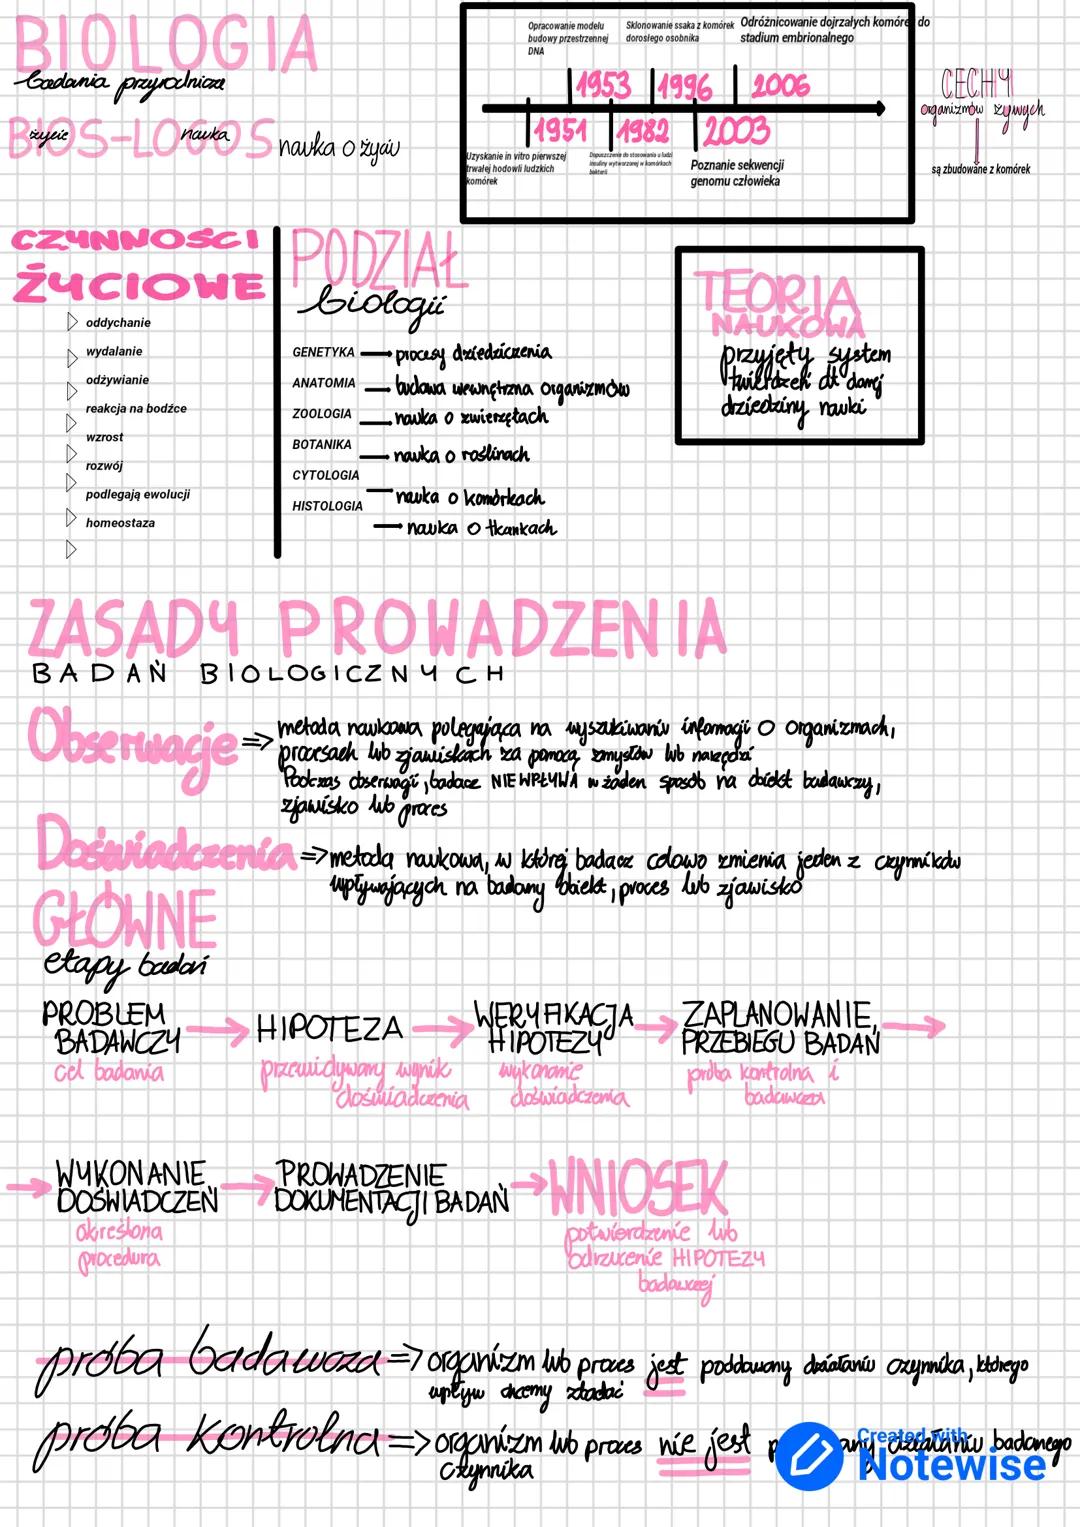 BIOLOGIA
badania przyrodnicze
życie nauka
BIOS-LOGOS nauka o życiu
Opracowanie modelu
budowy przestrzennej
DNA
Sklonowanie ssaka z komórek
dorosłego osobnika
Odróżnicowanie dojrzałych komórek do
stadium embrionalnego
1953 1996 2006
1951 1982 2003
Uzyskanie in vitro pierwszej
trwałej hodowli ludzkich
komórek
Dopuszczenie do stosowania u ludzi
insuliny wytworzonej w komórkach
bakterii
Poznanie sekwencji
genomu człowieka
CECHY
organizmów żywych
są zbudowane z komórek
CZYNNOŚCI
ŻYCIOWE
oddychanie
wydalanie
odżywianie
reakcja na bodźce
wzrost
rozwój
podlegają ewolucji
homeostaza
PODZIAŁ
biologii
GENETYKA procesy dziedziczenia
ANATOMIA budowa wewnętrzna organizmów
ZOOLOGIA nauka o zwierzętach
BOTANIKA nauka o roślinach
CYTOLOGIA nauka o komórkach
HISTOLOGIA nauka o tkankach
TEORIA
NAUKOWA
przyjęty system
twierdzeń dt danej
dziedziny nauki
ZASADY PROWADZENIA
BADAŃ BIOLOGICZNYCH
Obserwacje => metoda naukowa polegająca na wyszukiwaniu informacji o organizmach,
procesach lub zjawiskach za pomocą zmysłów lub narzędzi
Podczas obserwacji, badacz NIE WPŁYWA w żaden sposób na obiekt badawczy,
zjawisko lub proces
Doświadczenia => metoda naukowa, w której badacz celowo zmienia jeden z czynników
wpływających na badany obiekt, proces lub zjawisko
GŁÓWNE
etapy badań
PROBLEM
BADAWCZY
cel badania
HIPOTEZA
przewidywany wynik
doświadczenia
WERYFIKACJA
HIPOTEZY
wykonanie
doświadczenia
ZAPLANOWANIE
PRZEBIEGU BADAŃ
próba kontrolna i
badawcza
WYKONANIE
DOŚWIADCZEŃ
określona
procedura
PROWADZENIE
DOKUMENTACJI BADAŃ
WNIOSEK
potwierdzenie lub
odrzucenie HIPOTEZY
badawczej
próba badawcza => organizm lub proces jest poddawany działaniu czynnika, którego
wpływ chcemy zbadać
próba kontrolna => organizm lub proces nie jest działaniu badanego
czynnika
Created with
Notewise